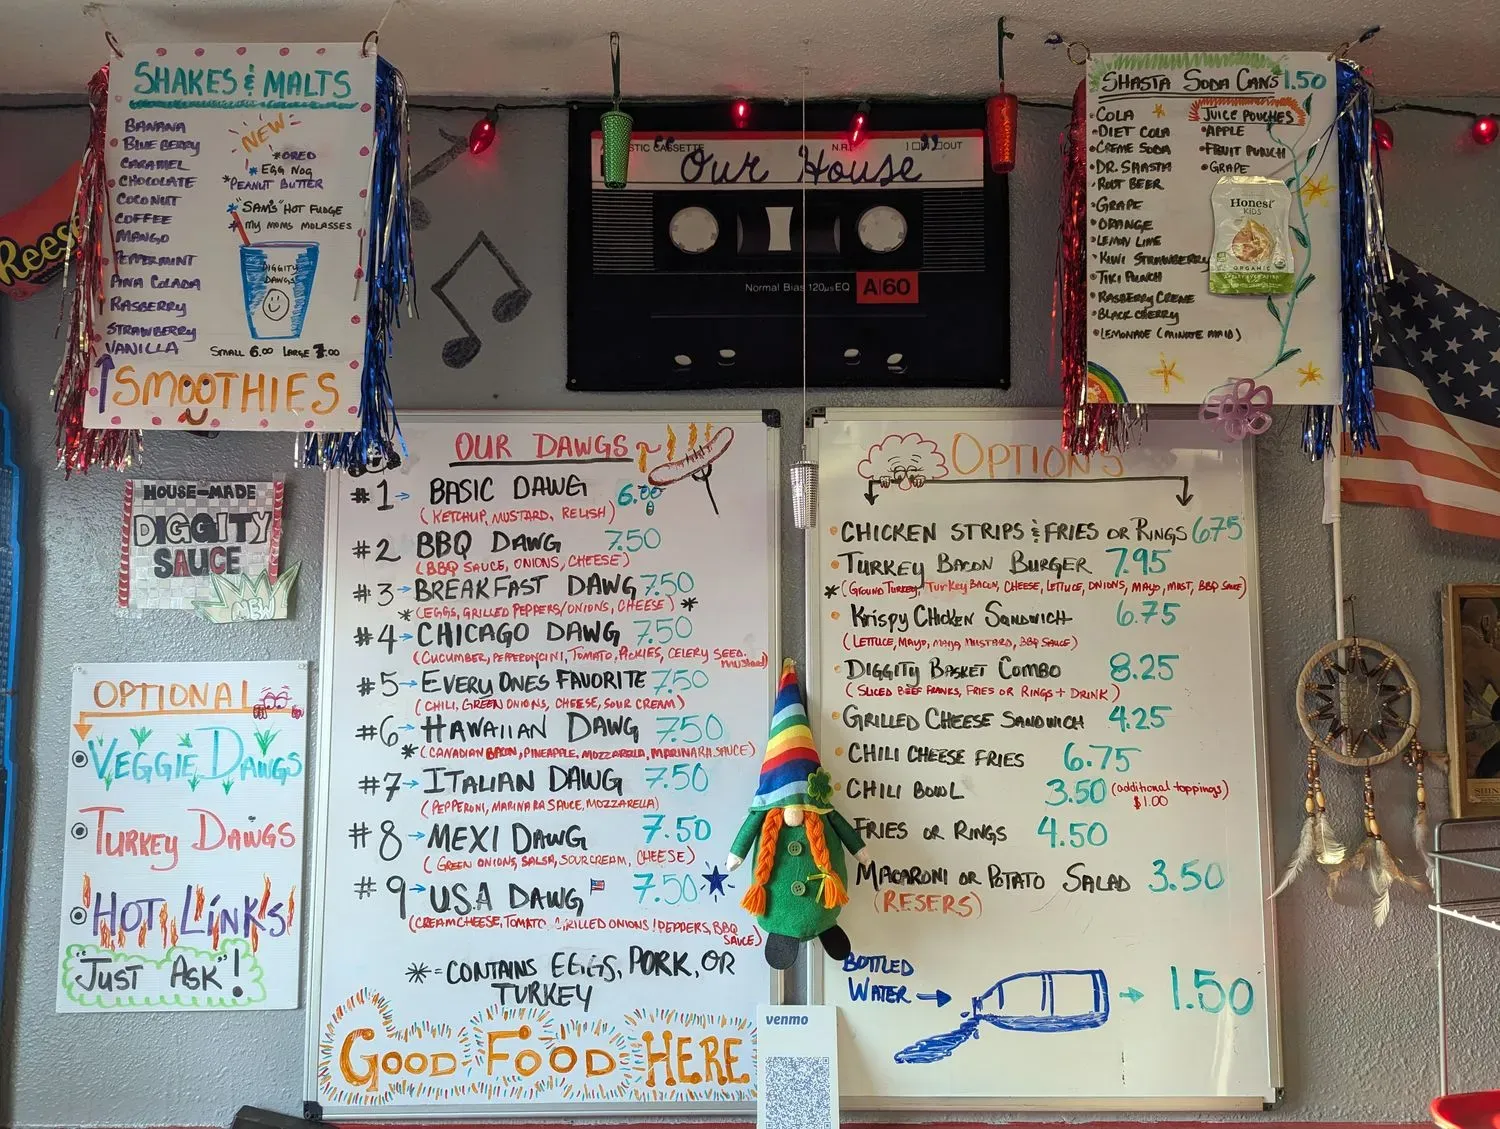 SHAKES & MALTS
BANANA
BLUE BERRY
CARAMEL
CHOCOLATE
COCONUT
COFFEE
MANGO
PEPPERMINT
PINA COLADA
RASBERRY
STRAWBERRY
VANILLA
NEW
*OREO
*EGG NOG
*PEANUT BUTTER
*"SAM'S" HOT FUDGE
*MY MOMS MOLASSES
DIGGITY
DAWGS
SMALL 6.00 LARGE 7.00
SMOOTHIES
Reese's
STIC CASSETTE
OUT
"Our House"
Normal Bias 120µs EQ
A|60
SHASTA SODA CANS 1.50
• COLA
• DIET COLA
• CREME SODA
• DR. SHASTA
• ROOT BEER
• GRAPE
• ORANGE
• LEMON LIME
• KIWI STRAWBERRY
• TIKI PUNCH
• RASBERRY CREME
• BLACK CHERRY
• LEMONADE (MINUTE MAID)
JUICE POUCHES
• APPLE
• FRUIT PUNCH
• GRAPE
Honest
KIDS
ORGANIC
HOUSE-MADE
DIGGITY
SAUCE
NEW
OPTIONAL
VEGGIE DAWGS
TURKEY DAWGS
HOT LINKS
"JUST ASK"!
OUR DAWGS
#1→ BASIC DAWG 6.00
(KETCHUP, MUSTARD, RELISH)
#2→ BBQ DAWG 7.50
(BBQ SAUCE, ONIONS, CHEESE)
#3→ BREAKFAST DAWG 7.50
*(EGGS, GRILLED PEPPERS/ONIONS, CHEESE)*
#4→ CHICAGO DAWG 7.50
(CUCUMBER, PEPPERONCINI, TOMATO, PICKLES, CELERY SEED.
MUSTARD)
#5→ EVERY ONES FAVORITE 7.50
(CHILI, GREEN ONIONS, CHEESE, SOUR CREAM)
#6→ HAWAIIAN DAWG 7.50
*(CANADIAN BACON, PINEAPPLE, MOZZARELLA, MARINARA SAUCE)
#7→ ITALIAN DAWG 7.50
(PEPPERONI, MARINARA SAUCE, MOZZARELLA)
#8→ MEXI DAWG 7.50
(GREEN ONIONS, SALSA, SOUR CREAM, CHEESE)
#9→ U.S.A DAWG 7.50
(CREAM CHEESE, TOMATO, GRILLED ONIONS/PEPPERS, BBQ
SAUCE)
*=CONTAINS EGGS, PORK, OR
TURKEY
GOOD FOOD HERE
OPTIONS
• CHICKEN STRIPS & FRIES OR RINGS 6.75
• TURKEY BACON BURGER 7.95
*(GROUND TURKEY, TURKEY BACON, CHEESE, LETTUCE, ONIONS, MAYO, MUST, BBQ SAUCE)
• KRISPY CHICKEN SANDWICH 6.75
(LETTUCE, MAYO, MUSTARD, BBQ SAUCE)
• DIGGITY BASKET COMBO 8.25
(SLICED BEEF FRANKS, FRIES OR RINGS + DRINK)
• GRILLED CHEESE SANDWICH 4.25
• CHILI CHEESE FRIES 6.75
• CHILI BOWL 3.50 (additional toppings)
$1.00
FRIES OR RINGS 4.50
MACARONI OR POTATO SALAD 3.50
(RESERS)
BOTTLED
WATER → → 1.50
venmo